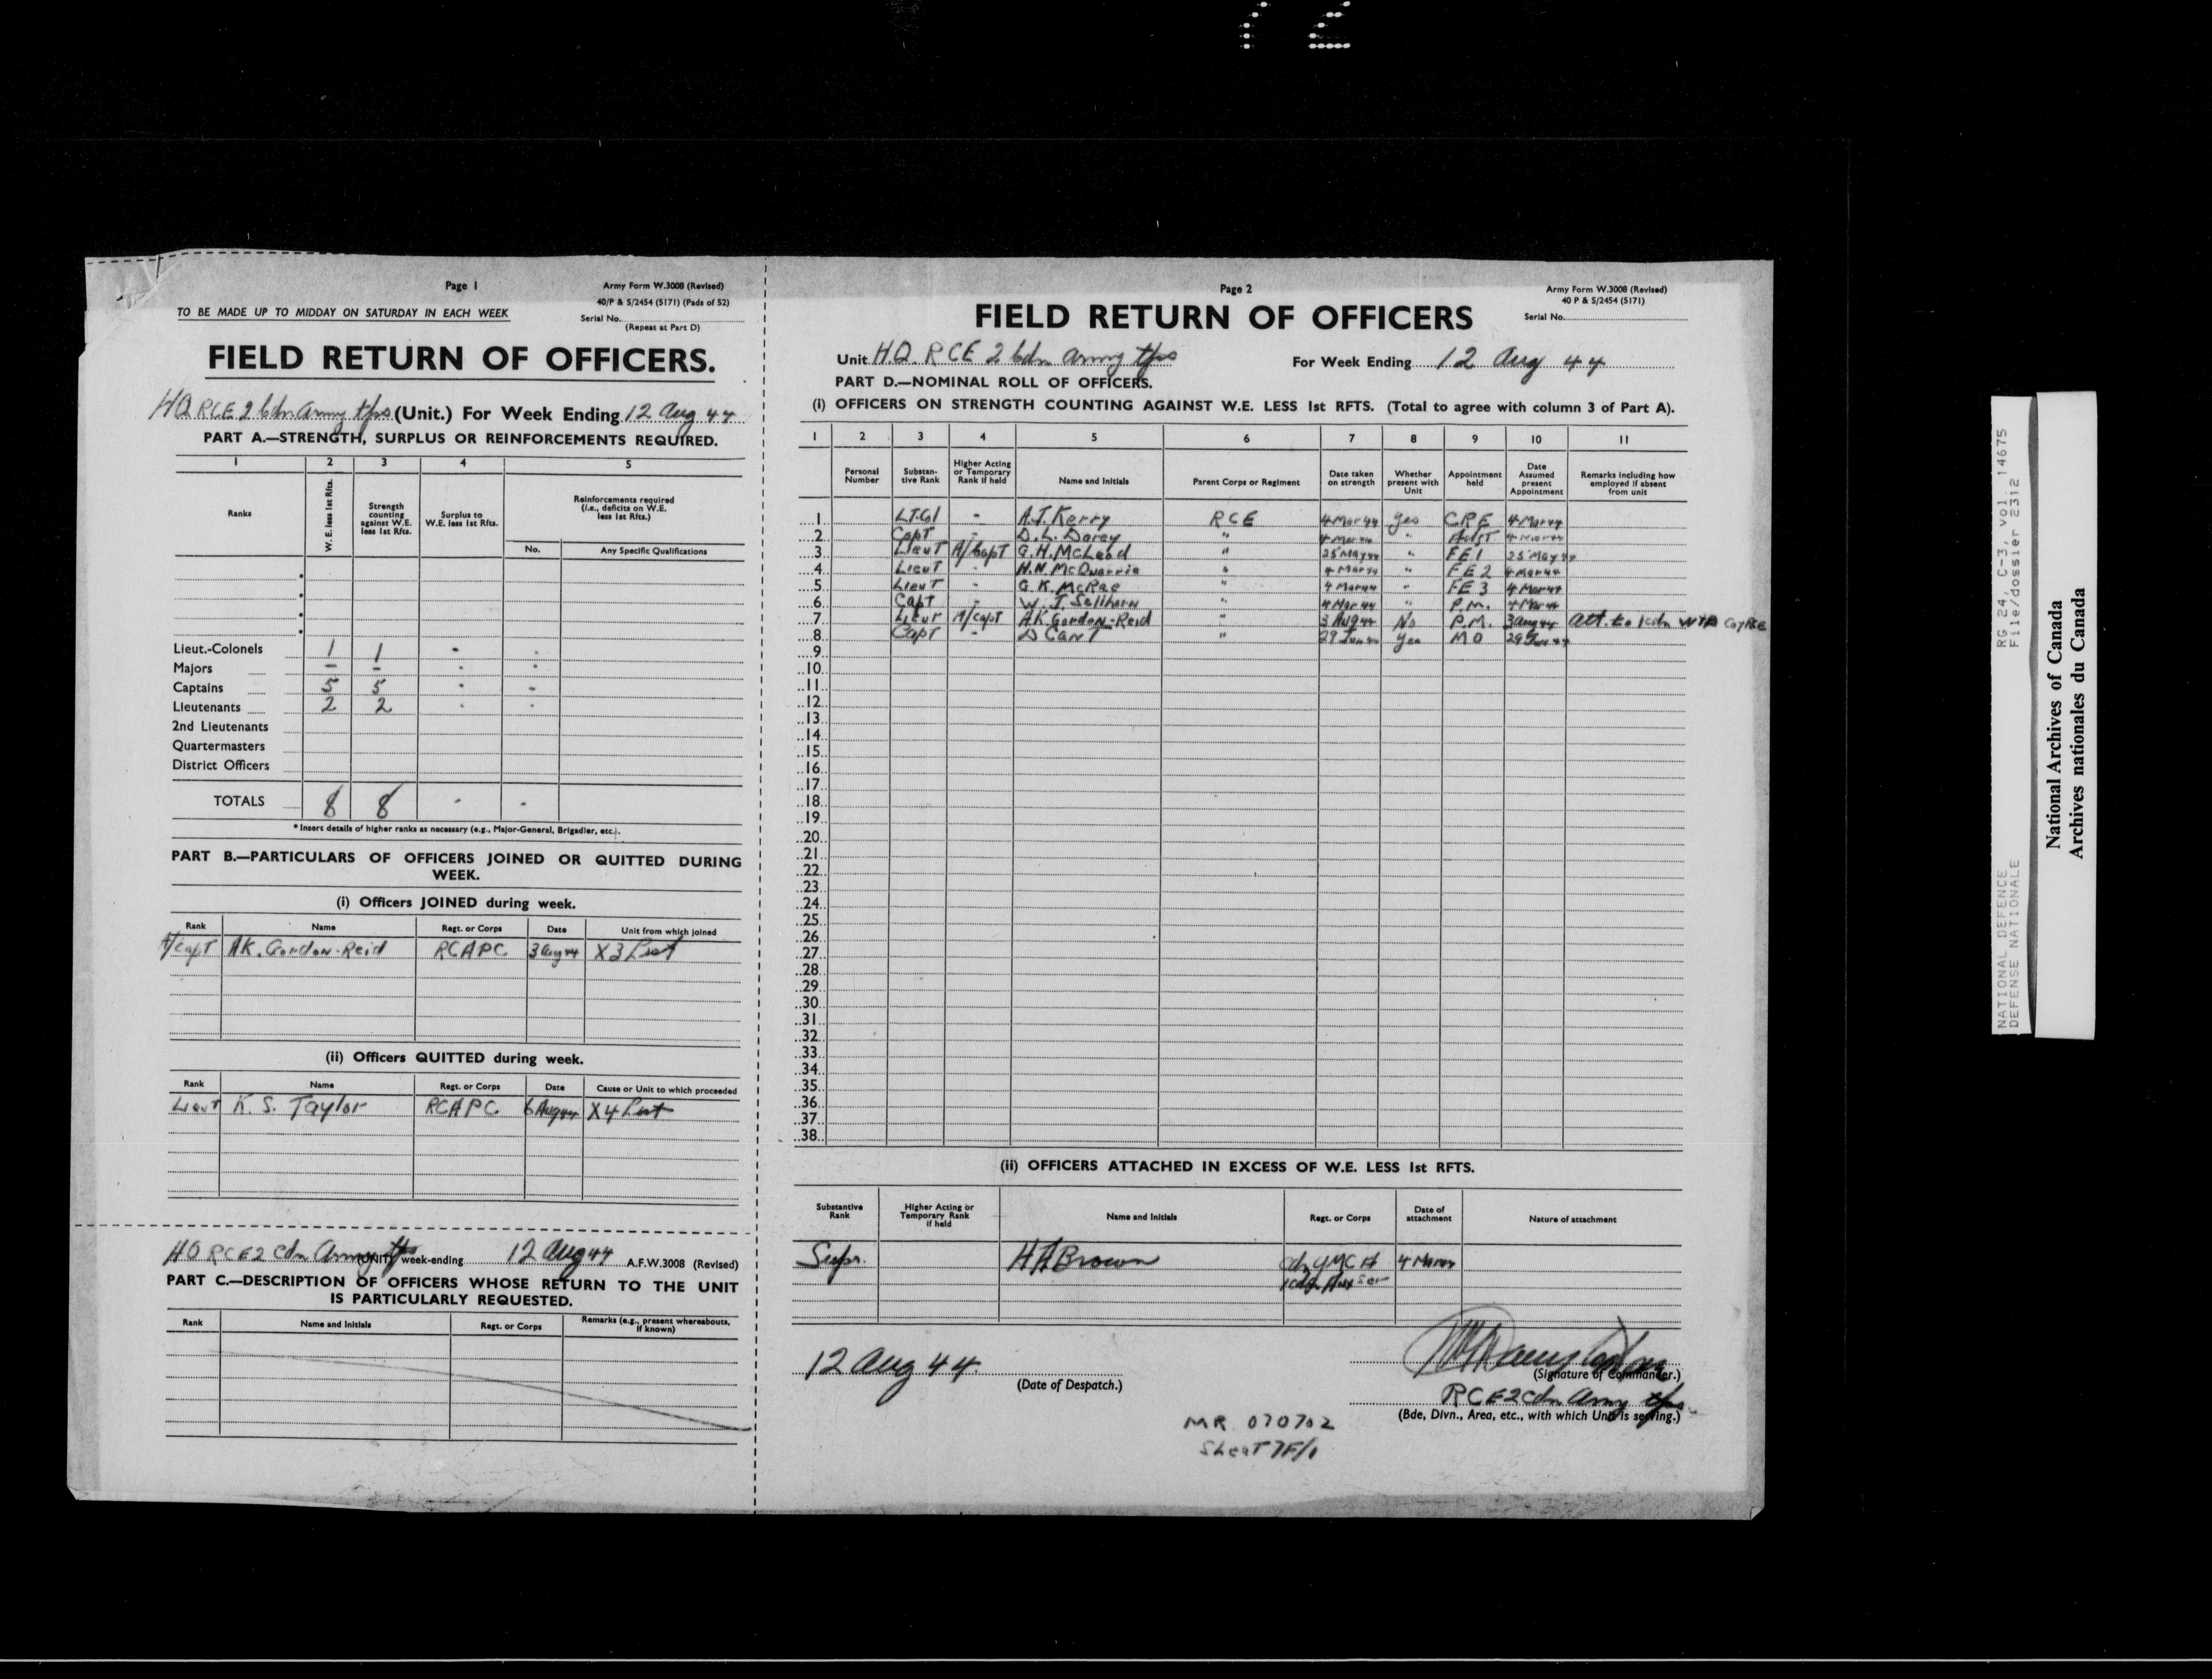 Page 1
Army Form W.3008 (Revised)
40/P & S/2454 (5171) (Pads of 52)
TO BE MADE UP TO MIDDAY ON SATURDAY IN EACH WEEK
Serial No.
(Repeat at Part D)
FIELD RETURN OF OFFICERS.
HQ RCE 2 Cdn Army tps (Unit.) For Week Ending 12 Aug 44
PART A.—STRENGTH, SURPLUS OR REINFORCEMENTS REQUIRED.
1 2 3 4 5
Ranks
W. E. less 1st Rfts.
Strength counting against W.E. less 1st Rfts.
Surplus to W.E. less 1st Rfts.
Reinforcements required (i.e., deficits on W.E. less 1st Rfts.)
No. Any Specific Qualifications
Lieut.-Colonels 1 1 - -
Majors - - - -
Captains 5 5 - -
Lieutenants 2 2 - -
2nd Lieutenants
Quartermasters
District Officers
TOTALS 8 8 - -
* Insert details of higher ranks as necessary (e.g., Major-General, Brigadier, etc.).
PART B.—PARTICULARS OF OFFICERS JOINED OR QUITTED DURING
WEEK.
(i) Officers JOINED during week.
Rank Name Regt. or Corps Date Unit from which joined
A/Capt A.K. Gordon-Reid RCAPC 3 Aug 44 X3 List
(ii) Officers QUITTED during week.
Rank Name Regt. or Corps Date Cause or Unit to which proceeded
Lieut K. S. Taylor RCAPC 6 Aug 44 X4 List
HQ RCE 2 Cdn Army tps (UNIT) week-ending 12 Aug 44 A.F.W.3008 (Revised)
PART C.—DESCRIPTION OF OFFICERS WHOSE RETURN TO THE UNIT
IS PARTICULARLY REQUESTED.
Rank Name and Initials Regt. or Corps Remarks (e.g., present whereabouts, if known)
Page 2
Army Form W.3008 (Revised)
40 P & S/2454 (5171)
Serial No.
FIELD RETURN OF OFFICERS
Unit HQ RCE 2 Cdn Army tps For Week Ending 12 Aug 44
PART D.—NOMINAL ROLL OF OFFICERS.
(i) OFFICERS ON STRENGTH COUNTING AGAINST W.E. LESS 1st RFTS. (Total to agree with column 3 of Part A).
1 2 3 4 5 6 7 8 9 10 11
Personal Number
Substantive Rank
Higher Acting or Temporary Rank if held
Name and Initials
Parent Corps or Regiment
Date taken on strength
Whether present with Unit
Appointment held
Date Assumed present Appointment
Remarks including how employed if absent from unit
1 Lt-Col - A.J. Kerry RCE 4 Mar 44 Yes CRE 4 Mar 44
2 Capt - D.L. Darey " 4 Mar 44 " Adjt 4 Mar 44
3 Lieut A/Capt G.H. McLeod " 25 May 44 " FE 1 25 May 44
4 Lieut - H.N. McQuarrie " 4 Mar 44 " FE 2 4 Mar 44
5 Lieut - G.K. McRae " 4 Mar 44 " FE 3 4 Mar 44
6 Capt - W.J. Sellhorn " 4 Mar 44 " P.M. 4 Mar 44
7 Lieut A/Capt A.K. Gordon-Reid " 3 Aug 44 No P.M. 3 Aug 44 att. to 1 Cdn Coy RCE
8 Capt - D Cant " 29 Jun 44 Yes MO 29 Jun 44
9
10
11
12
13
14
15
16
17
18
19
20
21
22
23
24
25
26
27
28
29
30
31
32
33
34
35
36
37
38
(ii) OFFICERS ATTACHED IN EXCESS OF W.E. LESS 1st RFTS.
Substantive Rank
Higher Acting or Temporary Rank if held
Name and Initials
Regt. or Corps
Date of attachment
Nature of attachment
Supr. H A Brown Cdn YMCA 4 Mar 44
12 Aug 44
(Date of Despatch.)
(Signature of Commander.)
RCE 2 Cdn Army tps
(Bde, Divn., Area, etc., with which Unit is serving.)
MR 070702
Sheet 7F/1
NATIONAL DEFENCE RG 24, C-3, vol 14675
DEFENSE NATIONALE File/dossier 2312
National Archives of Canada
Archives nationales du Canada